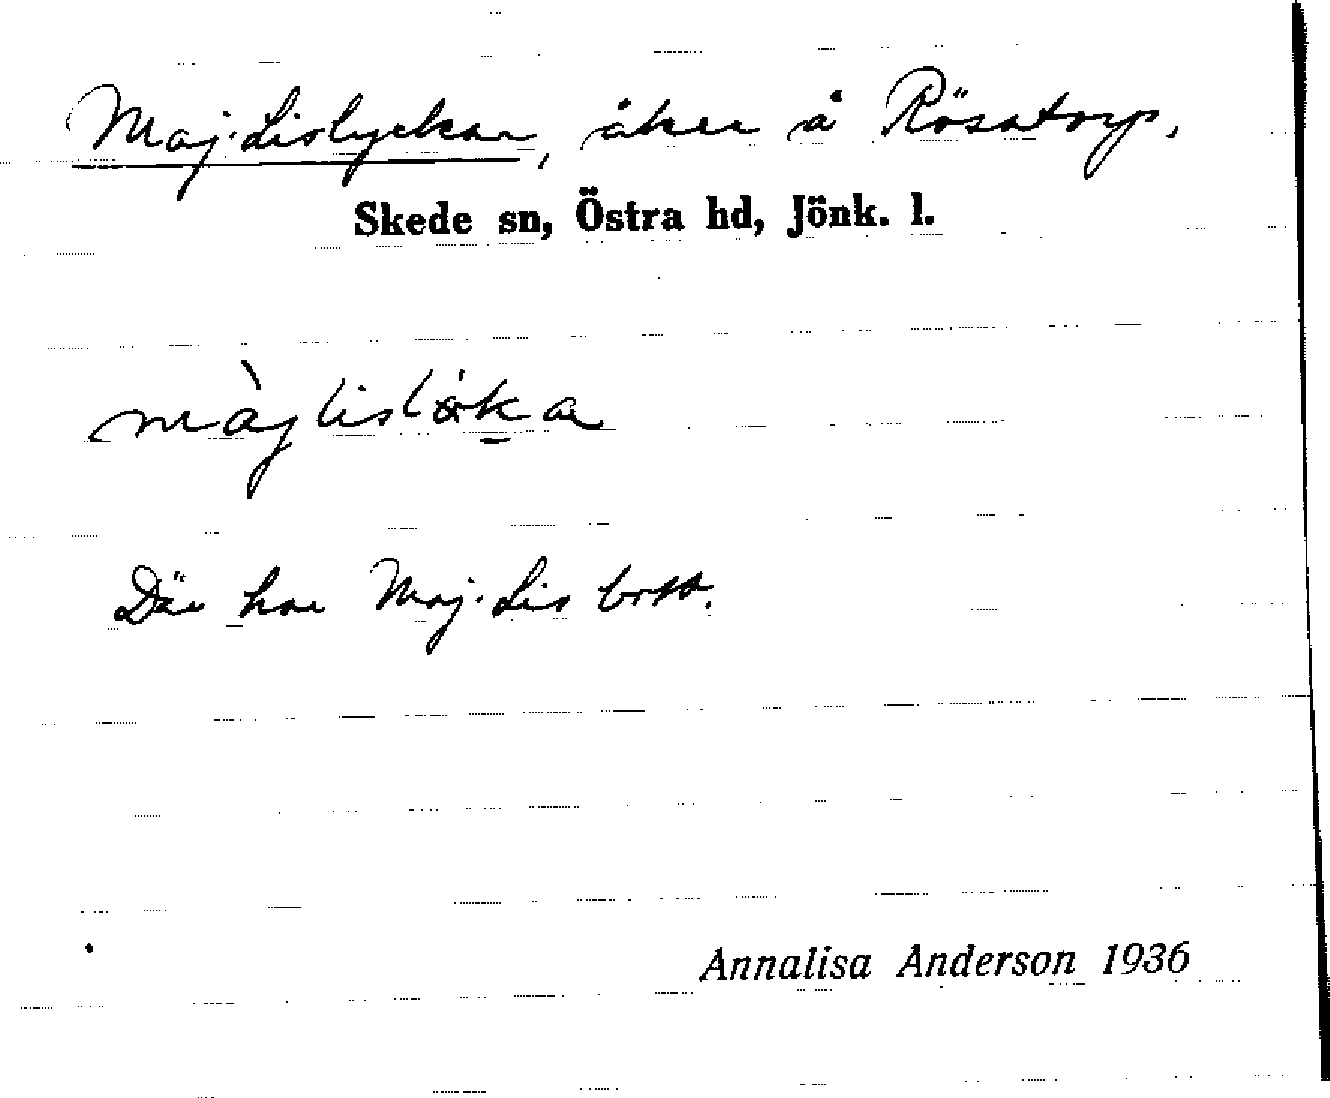 Maj-Lislyckan, åker å Rösatorp.
Skede sn, Östra hd, Jönk. l.
Där har Maj-Lis bott.
Annalisa Anderson 1936